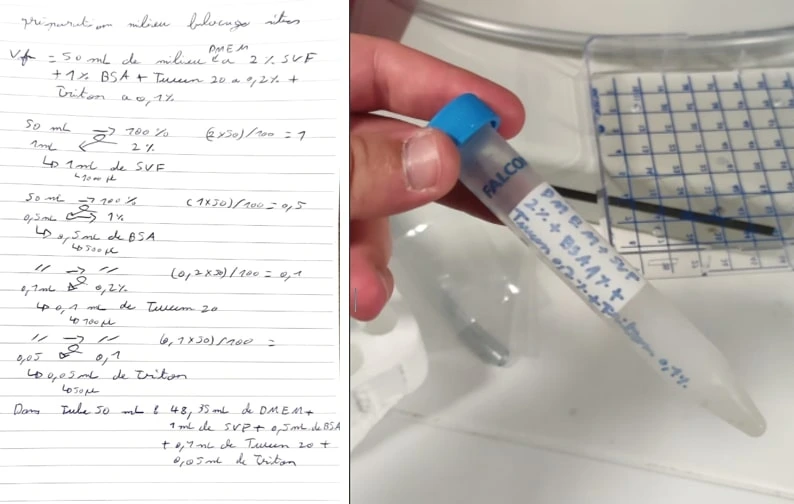 préparation milieu blocage sites
Vf = 50 mL de milieu DMEM à 2% SVF
+ 1% BSA + Tween 20 à 0,2% +
Triton à 0,1%
50 mL → 100% (2x50)/100 = 1
1mL ← 2%
↳ 1mL de SVF
↳ 1000 µL
50 mL → 100% (1x50)/100 = 0,5
0,5mL 1%
↳ 0,5mL de BSA
↳ 500µL
// → // (0,2x50)/100 = 0,1
0,1mL 0,2%
↳ 0,1 mL de Tween 20
↳ 100µL
// → // (0,1x50)/100 =
0,05 0,1
↳ 0,05mL de Triton
↳ 50µL
Dans Tube 50 mL : 48,35mL de DMEM +
1mL de SVF + 0,5mL de BSA
+ 0,1mL de Tween 20 +
0,05mL de Triton
FALCO
DMEM + SVF
2% + BSA 1% +
Tween 0,2% + Triton 0,1%